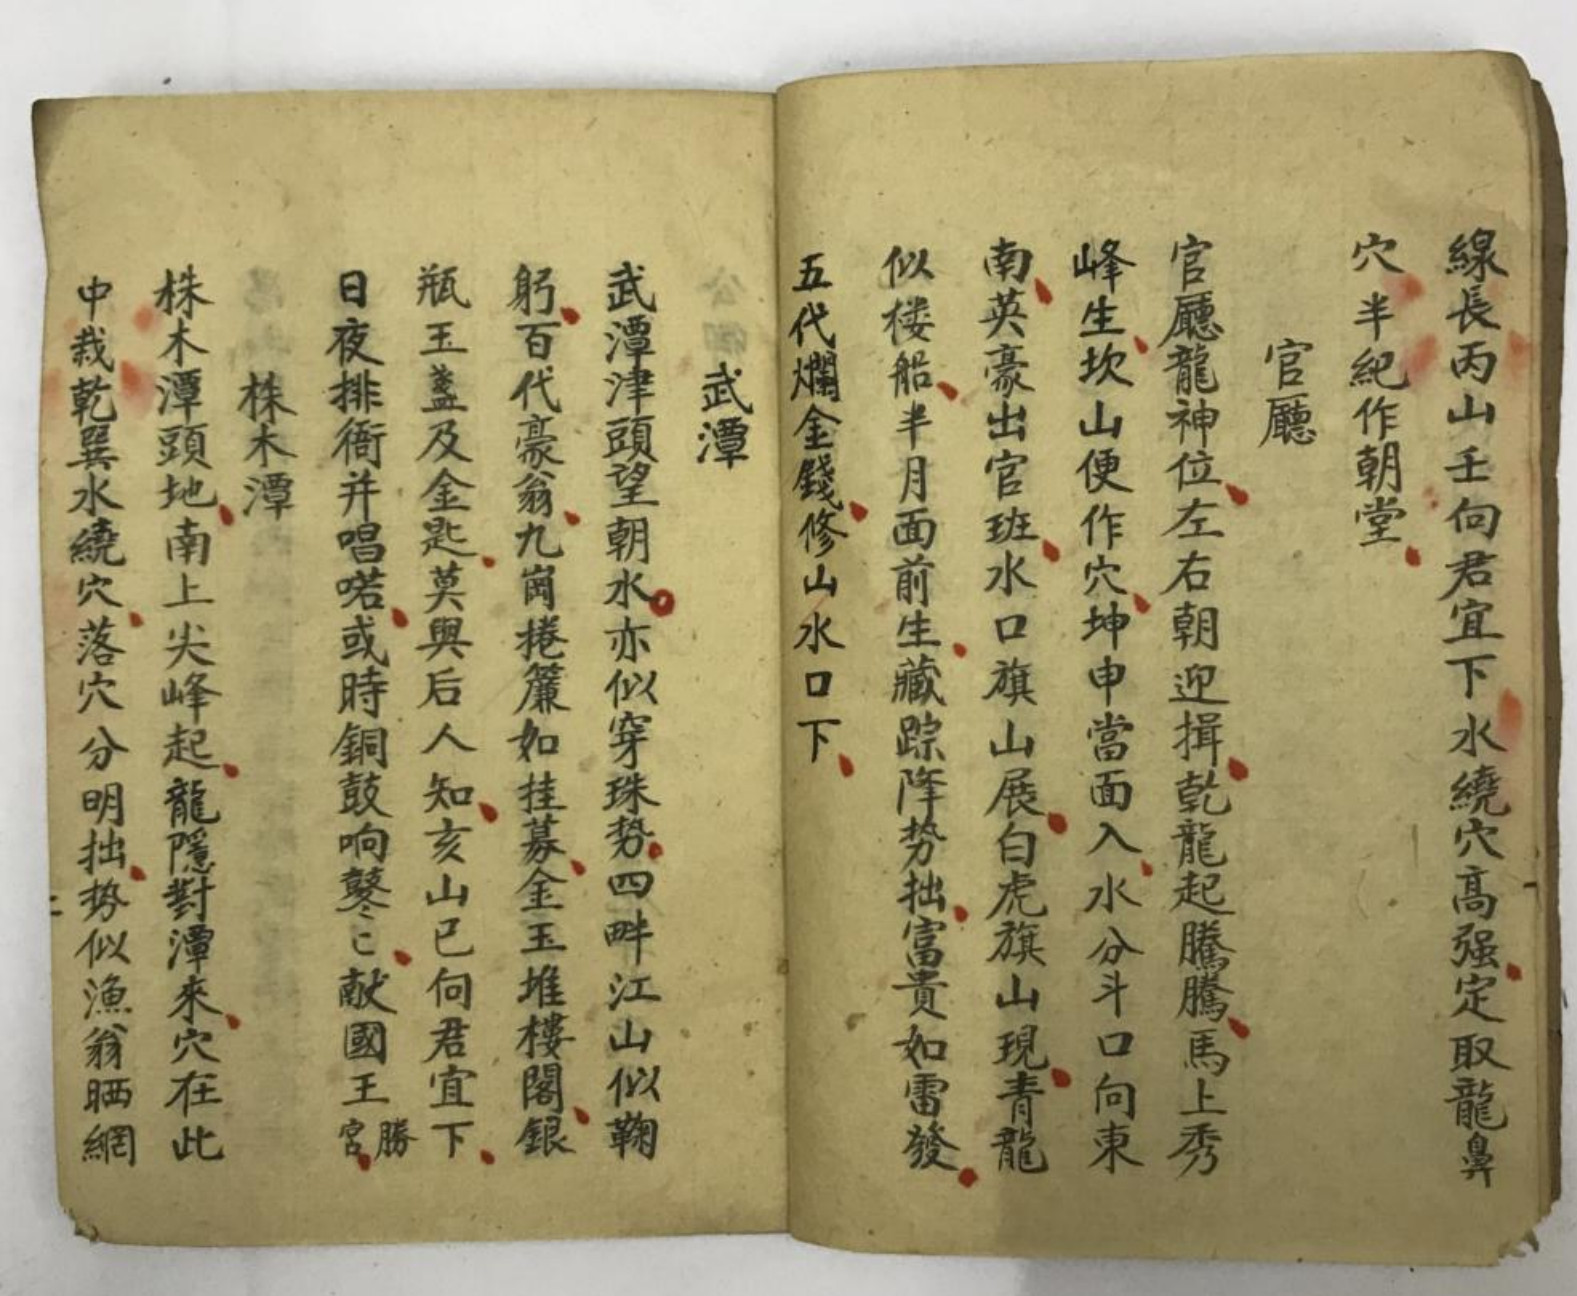 線長丙山壬向君宜下水繞穴高强定取龍鼻
穴半紀作朝堂
官廳
官廳龍神位左右朝迎揖乾龍起騰騰馬上秀
峰生坎山便作穴坤申當面入水分斗口向東
南英豪出官班水口旗山展白虎旗山現青龍
似楼船半月面前生藏踪降势拙富貴如雷發
五代爛金錢修山水口下
武潭
武潭津頭望朝水亦似穿珠势四畔江山似鞠
躬百代豪翁九崗捲簾如挂募金玉堆樓閣銀
瓶玉盞及金匙莫與后人知亥山巳向君宜下
日夜排衙并唱喏或時銅鼓响鼕〻献國王勝宫
株木潭
株木潭頭地南上尖峰起龍隱對潭來穴在此
中栽乾巽水繞穴落穴分明拙势似漁翁晒網